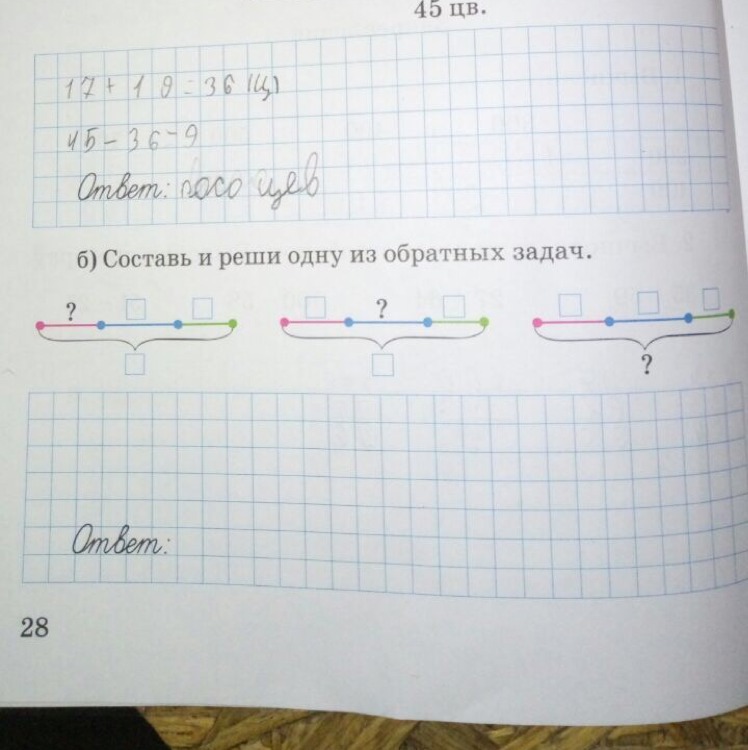 45 цв.
17 + 19 = 36 (ц)
45 - 36 - 9
Ответ: посо цев
б) Составь и реши одну из обратных задач.
? ? 
?
Ответ:
28